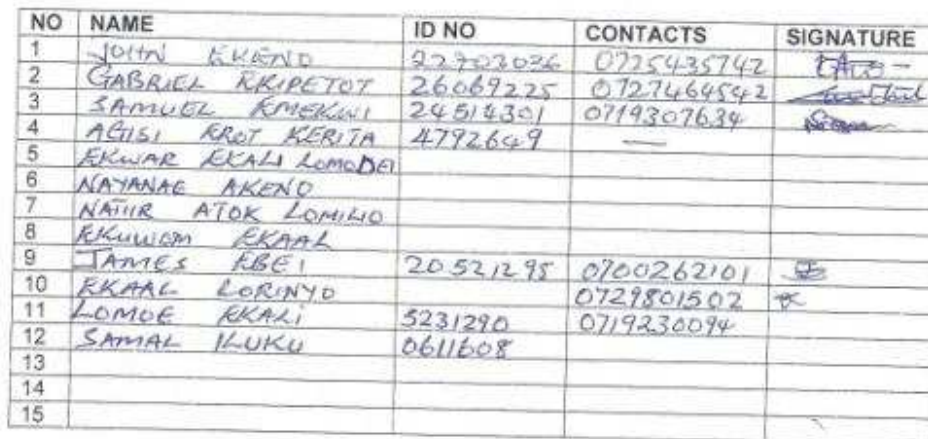 NO NAME ID NO CONTACTS SIGNATURE
1 JOHN EKENO 22703036 0725435742
2 GABRIEL EKIPETOT 26069225 0727464542
3 SAMUEL EMEKWI 24514301 0719307634
4 AGISI EROT KERITA 4792649 —
5 EKWAR EKALI LOMODEI
6 NAYANAE AKENO
7 ATOK LOMILIO
8 EKUWOM EKAAL
9 JAMES EBEI 20521295 0700262101
10 EKAAL LORINYO 0729801502
11 LOMOE EKALI 5231290 0719230094
12 SAMAL ILUKU 0611608
13
14
15